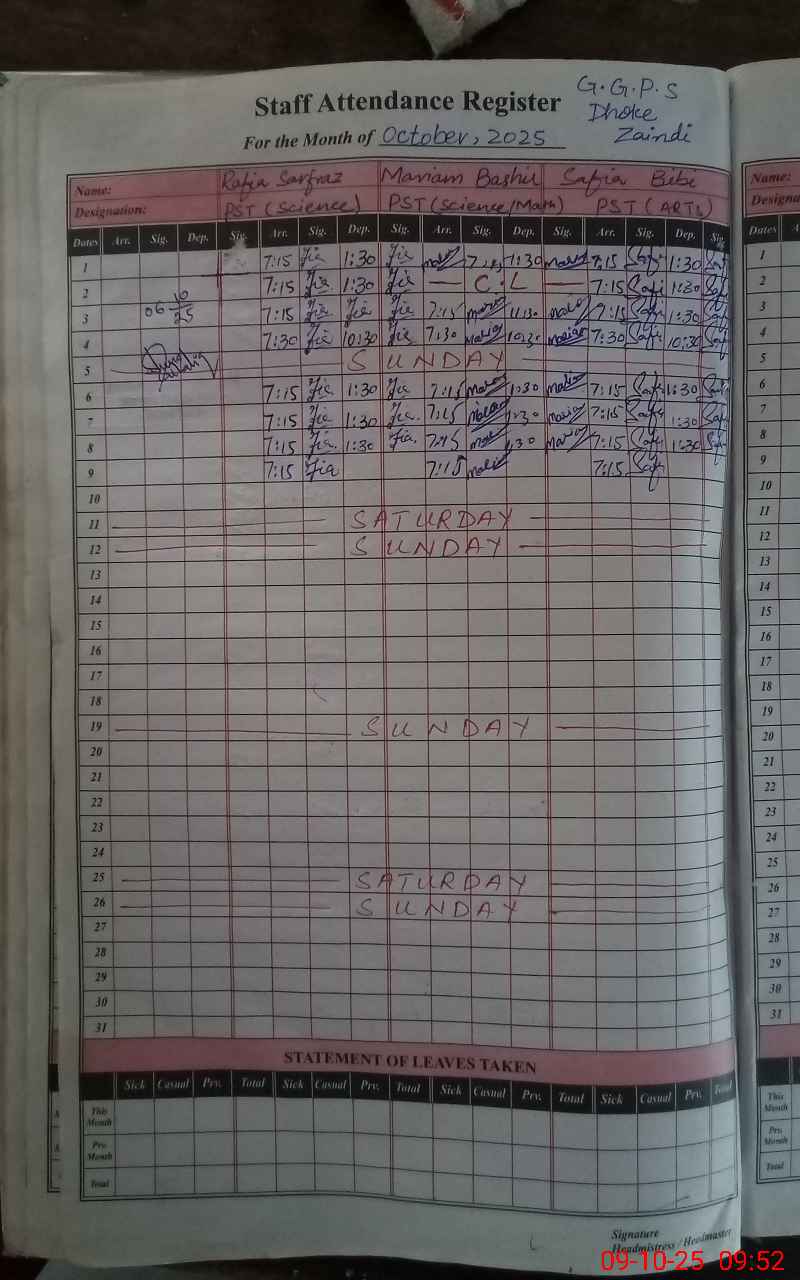 G.G.P.S
Dhoke
Zaindi
Staff Attendance Register
For the Month of October, 2025
Name: Rafia Sarfraz Mariam Bashir Safia Bibi
Designation: PST (Science) PST (Science/Math) PST (ARTs)
Dates Arr. Sig. Dep. Sig. Arr. Sig. Dep. Sig. Arr. Sig. Dep. Sig. Arr. Sig. Dep. Sig.
1 7:15 1:30 1:30 7:15 1:30
2 7:15 1:30 C.L 7:15 1:30
3 06 10 25 7:15 7:15 7:15 1:30
4 7:30 10:30 7:30 10:30 7:30 10:30
5 SUNDAY
6 7:15 1:30 7:15 1:30 7:15 1:30
7 7:15 1:30 7:15 1:30 7:15 1:30
8 7:15 1:30 7:15 1:30 7:15 1:30
9 7:15 7:15 7:15
10
11 SATURDAY
12 SUNDAY
13
14
15
16
17
18
19 SUNDAY
20
21
22
23
24
25 SATURDAY
26 SUNDAY
27
28
29
30
31
STATEMENT OF LEAVES TAKEN
Sick Casual Prv. Total Sick Casual Prv. Total Sick Casual Prv. Total Sick Casual Prv. Total
This Month
Prv. Month
Total
Signature
Headmistress / Headmaster
Name:
Designa
Dates A
1
2
3
4
5
6
7
8
9
10
11
12
13
14
15
16
17
18
19
20
21
22
23
24
25
26
27
28
29
30
31
This Month
Prv. Month
Total
09-10-25 09:52